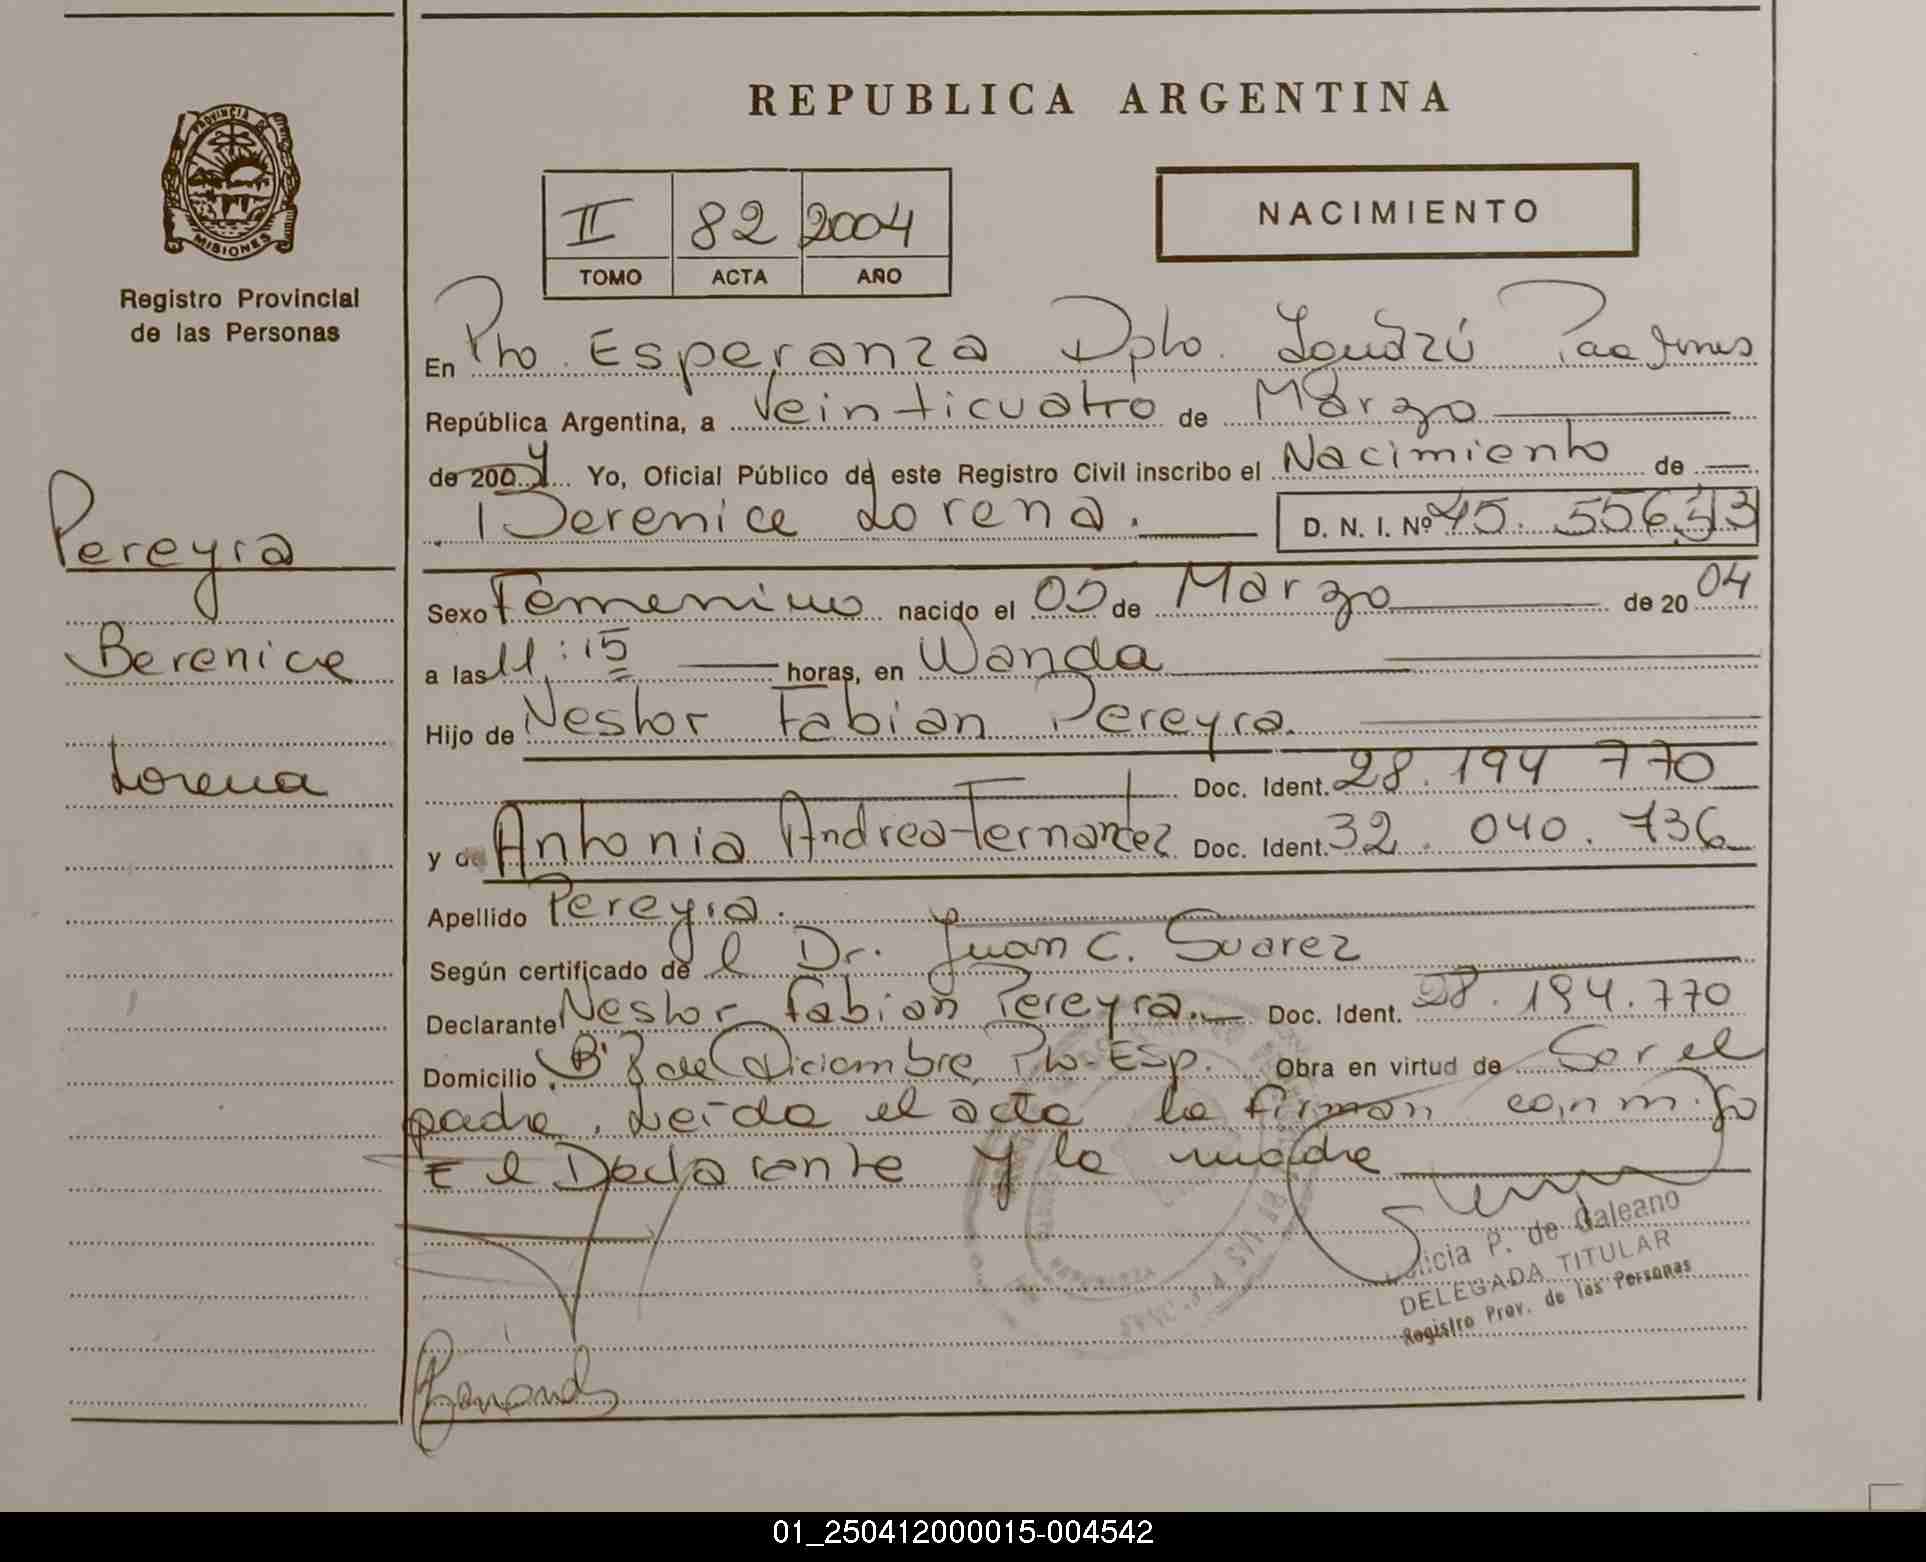 REPUBLICA ARGENTINA
PROVINCIA DE
MISIONES
Registro Provincial
de las Personas
II 82 2004
TOMO ACTA AÑO
NACIMIENTO
En Pto. Esperanza Dpto. Iguazú
República Argentina, a Veinticuatro de Marzo
de 2004 Yo, Oficial Público de este Registro Civil inscribo el Nacimiento de
Berenice Lorena. D. N. I. Nº 45. 556
Pereyra
Berenice
Lorena
Sexo Femenino nacido el 05 de Marzo de 20 04
a las 11:15 horas, en Wanda
Hijo de Nestor Fabian Pereyra.
Doc. Ident. 28.194 770
y de Antonia Andrea Fernandez Doc. Ident. 32. 040. 736
Apellido Pereyra.
Según certificado de l Dr. Juan C. Suarez
Declarante Nestor Fabian Pereyra. Doc. Ident. 28.194.770
Domicilio Bº 8 de Diciembre Pto-Esp. Obra en virtud de Ser el
padre. Leída el acta la firman conmigo
El Declarante y la madre
P. de Galeano
DELEGADA TITULAR
Registro Prov. de las Personas
01_250412000015-004542